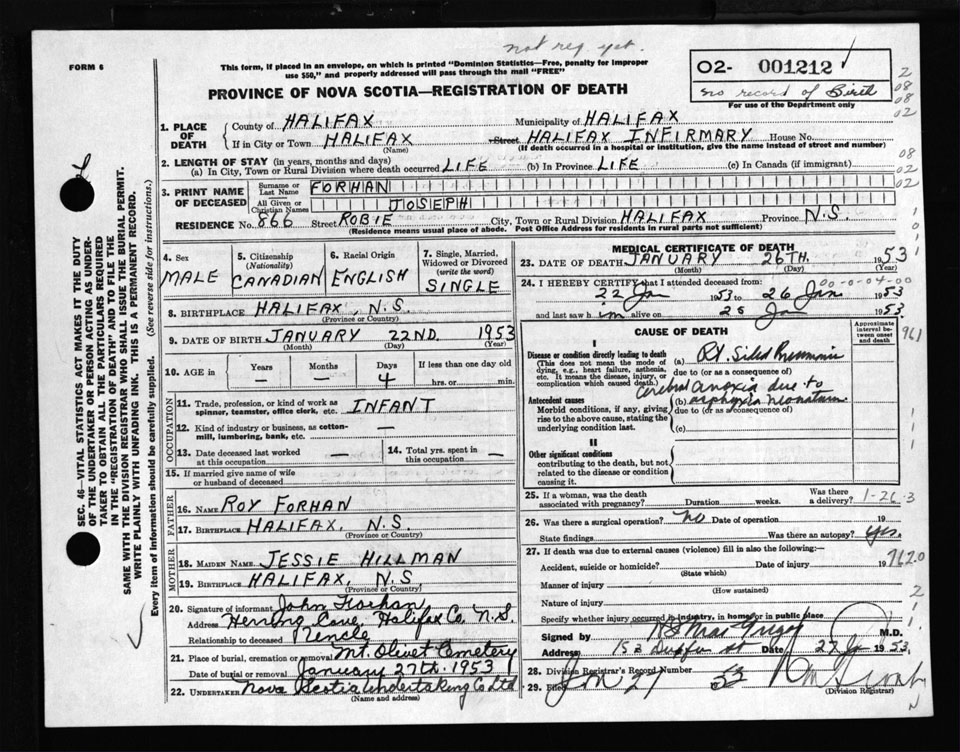 not reg yet.
FORM 6
This form, if placed in an envelope, on which is printed "Dominion Statistics—Free, penalty for improper
use $50," and properly addressed will pass through the mail "FREE"
02- 001212
no record of Birth
For use of the Department only
PROVINCE OF NOVA SCOTIA—REGISTRATION OF DEATH
1. PLACE OF DEATH
County of HALIFAX Municipality of HALIFAX
If in City or Town HALIFAX Street HALIFAX INFIRMARY House No.
(Name) (If death occurred in a hospital or institution, give the name instead of street and number)
2. LENGTH OF STAY (in years, months and days)
(a) In City, Town or Rural Division where death occurred LIFE (b) In Province LIFE (c) In Canada (if immigrant)
3. PRINT NAME OF DECEASED
Surname or Last Name FORHAN
All Given or Christian Names JOSEPH
RESIDENCE No. 866 Street ROBIE City, Town or Rural Division HALIFAX Province N.S.
(Residence means usual place of abode. Post Office Address for residents in rural parts not sufficient)
4. Sex
MALE
5. Citizenship (Nationality)
CANADIAN
6. Racial Origin
ENGLISH
7. Single, Married, Widowed or Divorced (write the word)
SINGLE
8. BIRTHPLACE HALIFAX, N.S.
(Province or Country)
9. DATE OF BIRTH JANUARY 22ND. 1953
(Month) (Day) (Year)
10. AGE in Years — Months — Days 4 If less than one day hrs. or min.
OCCUPATION
11. Trade, profession, or kind of work as spinner, teamster, office clerk, etc. INFANT
12. Kind of industry or business, as cotton-mill, lumbering, bank, etc.
13. Date deceased last worked at this occupation —
14. Total yrs. spent in this occupation —
15. If married give name of wife or husband of deceased
FATHER
16. NAME ROY FORHAN
17. BIRTHPLACE HALIFAX, N.S.
(Province or Country)
MOTHER
18. MAIDEN NAME JESSIE HILLMAN
19. BIRTHPLACE HALIFAX, N.S.
(Province or Country)
20. Signature of informant John Forhan
Address Herring Cove, Halifax Co. N.S.
Relationship to deceased Uncle
21. Place of burial, cremation or removal Mt. Olivet Cemetery
Date of burial or removal January 27th. 1953
22. UNDERTAKER Nova Scotia Undertaking Co Ltd
(Name and address)
MEDICAL CERTIFICATE OF DEATH
23. DATE OF DEATH JANUARY 26TH. 1953
(Month) (Day) (Year)
24. I HEREBY CERTIFY that I attended deceased from:
22 Jan 1953 to 26 Jan 1953
and last saw him alive on 25 Jan 1953
CAUSE OF DEATH
Approximate interval between onset and death
I
Disease or condition directly leading to death (a) Rt. Sided Pneumonia
(This does not mean the mode of dying, e.g., heart failure, asthenia, etc. It means the disease, injury, or complication which caused death.)
due to (or as a consequence of)
cerebral anoxia due to
Antecedent causes (b) asphyxia neonatorum
Morbid conditions, if any, giving rise to the above cause, stating the underlying condition last.
due to (or as a consequence of)
(c)
II
Other significant conditions
contributing to the death, but not related to the disease or condition causing it.
25. If a woman, was the death associated with pregnancy? Duration weeks. Was there a delivery?
1-26-3
26. Was there a surgical operation? no Date of operation 19
State findings Was there an autopsy? yes.
27. If death was due to external causes (violence) fill in also the following:—
Accident, suicide or homicide? Date of injury 19
(State which)
7620
Manner of injury
(How sustained)
Nature of injury
Specify whether injury occurred in industry, in home, or in public place
Signed by M.D.
Address 153 St Date 27 Jan 1953.
28. Division Registrar's Record Number 53
29. Filed Jan 27
(Division Registrar)
SEC. 46—VITAL STATISTICS ACT MAKES IT THE DUTY
OF THE UNDERTAKER OR PERSON ACTING AS UNDER-
TAKER TO OBTAIN ALL THE PARTICULARS REQUIRED
IN THE "REGISTRATION OF DEATH" AND TO FILE THE
SAME WITH THE DIVISION REGISTRAR WHO SHALL ISSUE THE BURIAL PERMIT.
WRITE PLAINLY WITH UNFADING INK. THIS IS A PERMANENT RECORD.
Every item of information should be carefully supplied. (See reverse side for instructions.)